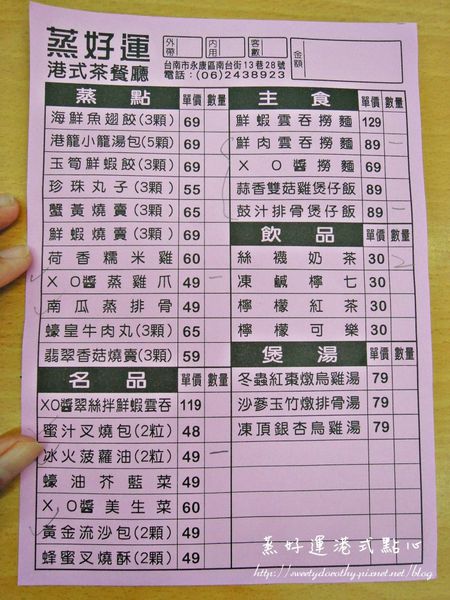 蒸好運
港式茶餐廳
外帶 內用 客數 金額
台南市永康區南台街13巷28號
電話：(06)2438923
蒸點 單價 數量
海鮮魚翅餃(3顆) 69
港龍小籠湯包(5顆) 69
玉筍鮮蝦餃(3顆) 69
珍珠丸子(3顆) 55
蟹黃燒賣(3顆) 69
鮮蝦燒賣(3顆) 69
荷香糯米雞 60
XO醬蒸雞爪 49
南瓜蒸排骨 49
蠔皇牛肉丸(3顆) 65
翡翠香菇燒賣(3顆) 59
名品 單價 數量
XO醬翠絲拌鮮蝦雲吞 119
蜜汁叉燒包(2粒) 48
冰火菠蘿油(2粒) 49
蠔油芥藍菜 49
XO醬美生菜 60
黃金流沙包(2顆) 49
蜂蜜叉燒酥(2顆) 49
主食 單價 數量
鮮蝦雲吞撈麵 129
鮮肉雲吞撈麵 89
XO醬撈麵 69
蒜香雙菇雞煲仔飯 89
鼓汁排骨煲仔飯 89
飲品 單價 數量
絲襪奶茶 30 2
凍鹹檸七 30
檸檬紅茶 30
檸檬可樂 30
煲湯 單價 數量
冬蟲紅棗燉烏雞湯 79
沙蔘玉竹燉排骨湯 79
凍頂銀杏烏雞湯 79
蒸好運港式點心
http://sweetydorothy.pixnet.net/blog